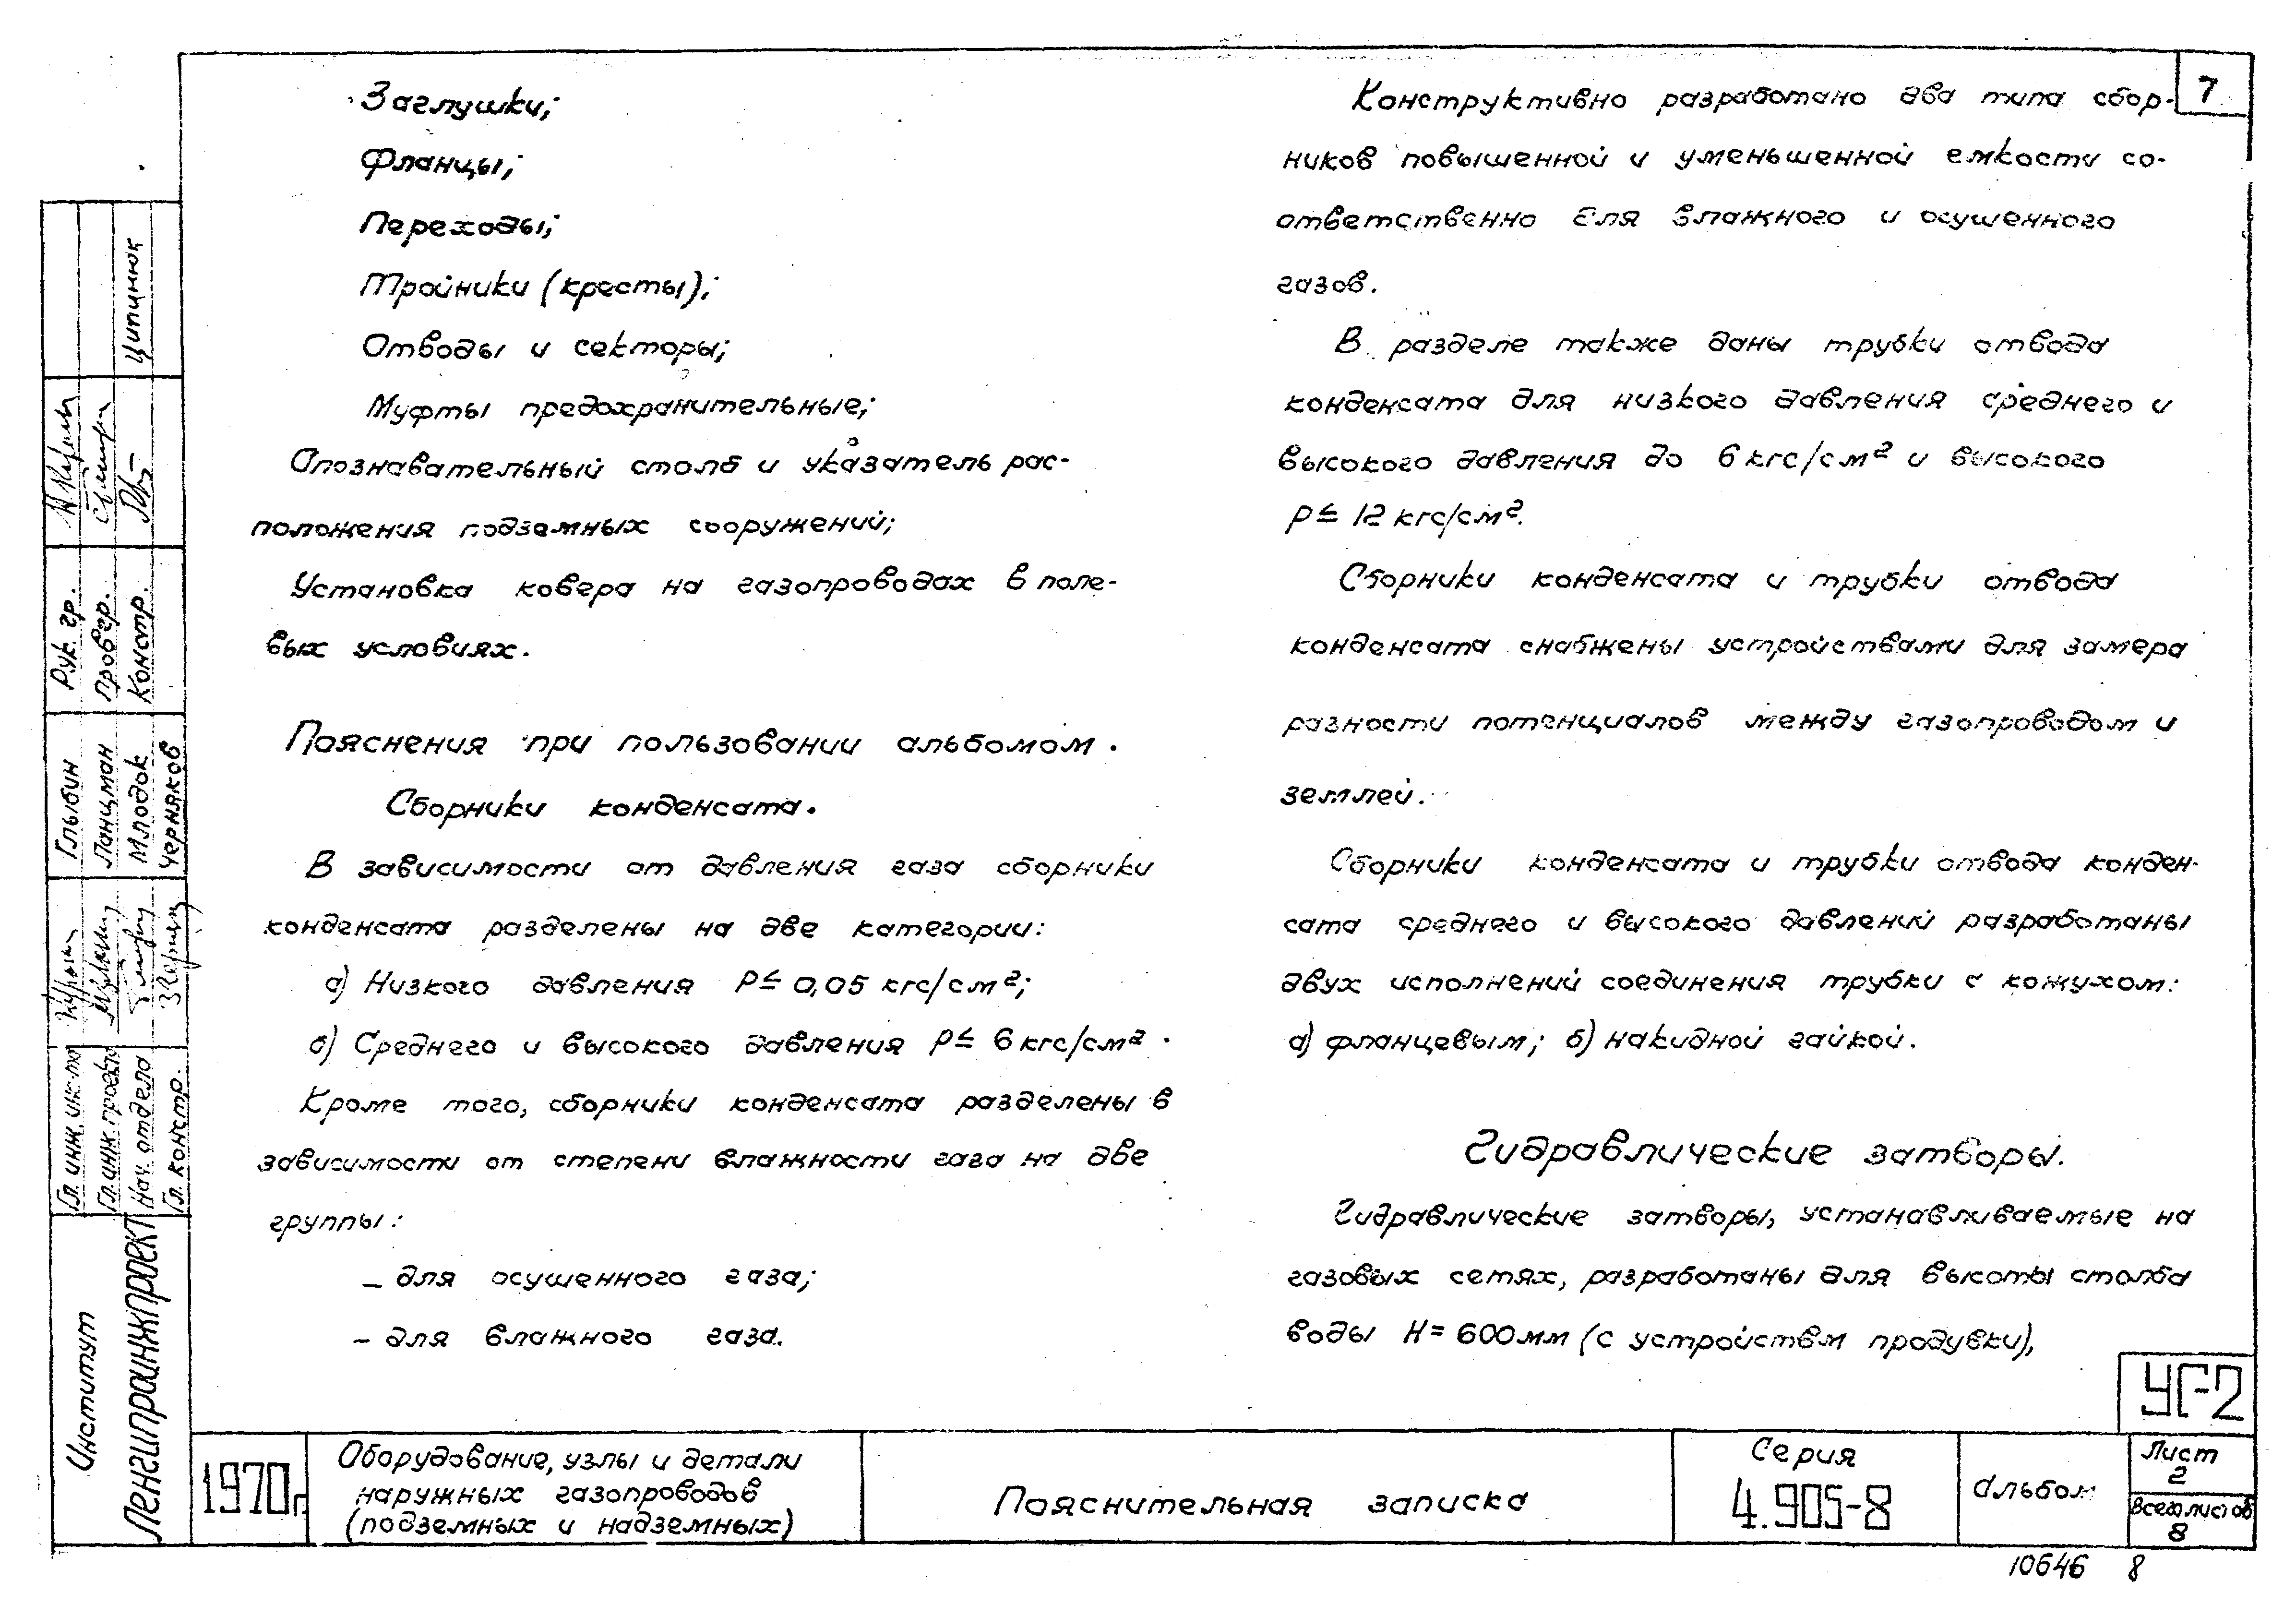 Заглушки;
Фланцы;
Переходы;
Тройники (кресты);
Отводы и секторы;
Муфты предохранительные;
Опознавательный столб и указатель рас-
положения подземных сооружений;
Установка ковера на газопроводах в поле-
вых условиях.
Пояснения при пользовании альбомом.
Сборники конденсата.
В зависимости от давления газа сборники
конденсата разделены на две категории:
а) Низкого давления P ≤ 0,05 кгс/см²;
б) Среднего и высокого давления P ≤ 6 кгс/см².
Кроме того, сборники конденсата разделены в
зависимости от степени влажности газа на две
группы:
– для осушенного газа;
– для влажного газа.
7
Конструктивно разработано два типа сбор-
ников повышенной и уменьшенной емкости со-
ответственно для влажного и осушенного
газов.
В разделе также даны трубки отвода
конденсата для низкого давления среднего и
высокого давления до 6 кгс/см² и высокого
P ≤ 12 кгс/см².
Сборники конденсата и трубки отвода
конденсата снабжены устройствами для замера
разности потенциалов между газопроводом и
землей.
Сборники конденсата и трубки отвода конден-
сата среднего и высокого давлений разработаны
двух исполнений соединения трубки с кожухом:
а) фланцевым; б) накидной гайкой.
Гидравлические затворы.
Гидравлические затворы, устанавливаемые на
газовых сетях, разработаны для высоты столба
воды H = 600 мм (с устройствм продувки),
УГ-2
1970г.
Оборудование, узлы и детали
наружных газопроводов
(подземных и надземных)
Пояснительная записка
Серия
4.905-8
Альбом
Лист
2
Всего листов
8
10646 8
Институт
Ленгипроинжпроект
Гл. инж. ин-та
Гл. инж. проекта
Нач. отдела
Гл. констр.
Глыбин
Ланцман
Млодок
Черняков
Рук. гр.
Провер.
Констр.
Ципинюк